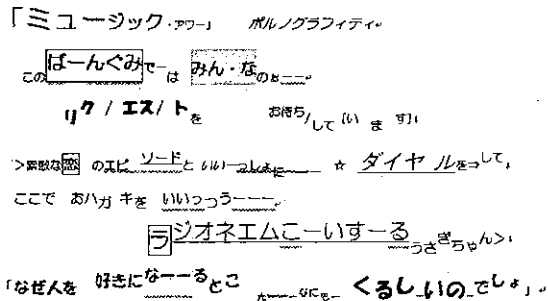 「ミュージック・アワー」 ポルノグラフィティ
このばーんぐみでーは みん・なのぉーー
リク / エス/ トを お待ち/して [い ま す]
>素敵な恋 のエピ ソードと いいーっしょにーー ☆ ダイヤ ルをーして
ここで おハガ キを いいっつうーーー
ラジオネエムこーいすーるうさぎちゃん>
「なぜ人を 好きになーーるとこ なにも くるし いの でしょ」